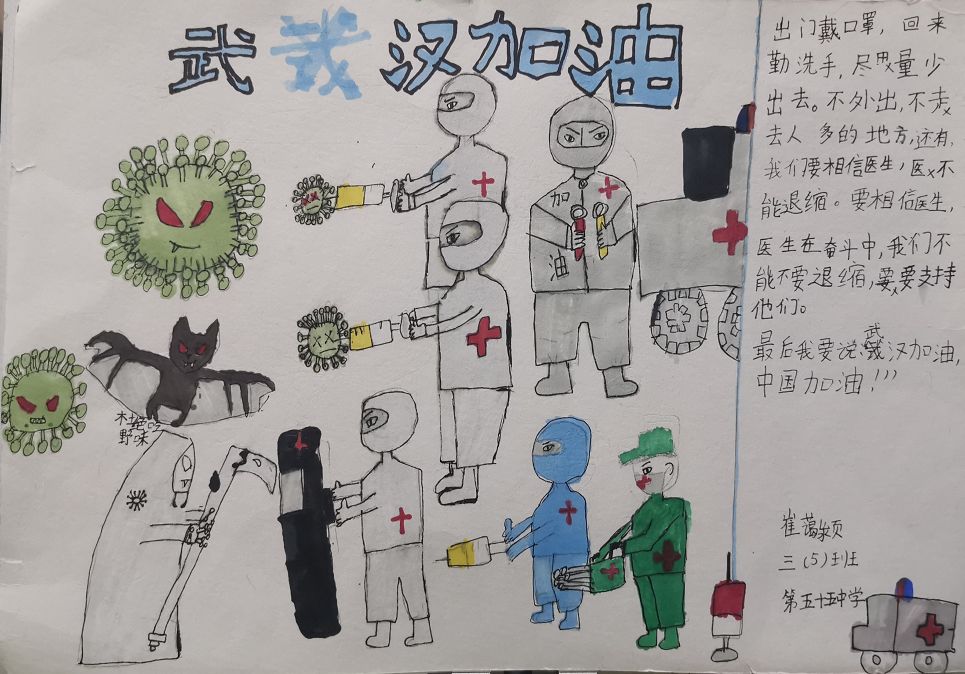 武汉加油
加
油
杜绝吃
野味
出门戴口罩，回来
勤洗手，尽量少
出去。不外出，不去
去人多的地方，还有，
我们要相信医生，医不
能退缩。要相信医生，
医生在奋斗中，我们不
能不要退缩，要要支持
他们。
最后我要说：武汉加油，
中国加油！！！
崔蔼颍
三（5）班
第五十五中学